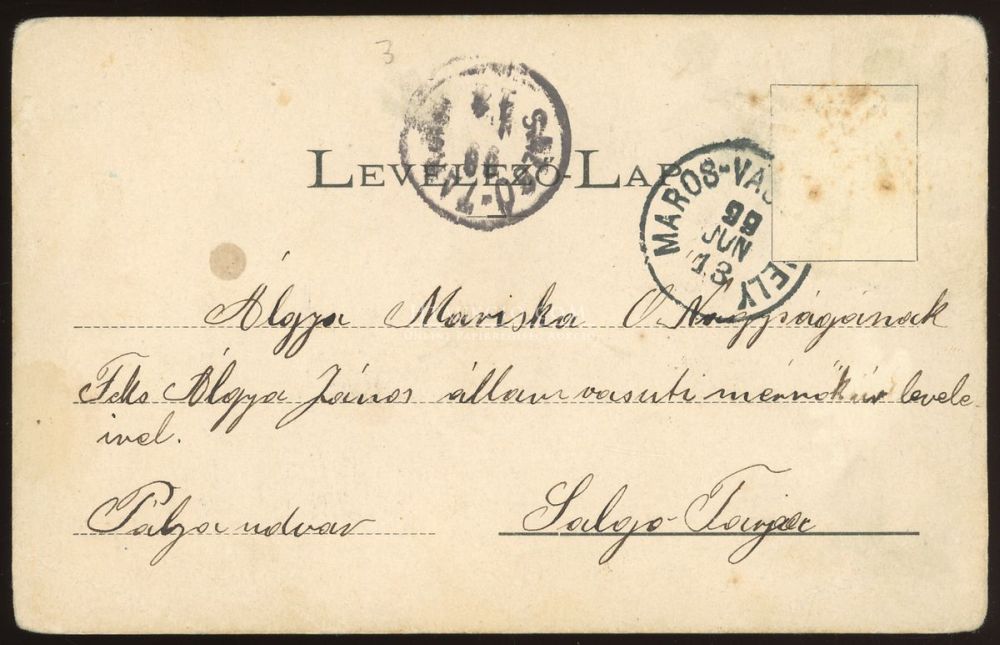 3
LEVELEZŐ-LAP
SALGÓ-TA
MAROS-VÁS HELY
99
JUN
13
Álgya Mariska Ő Nagyságának
Álgya János állam vasuti mérnök úr levele
ivel.
Pálya udvar
Salgo-Tarján